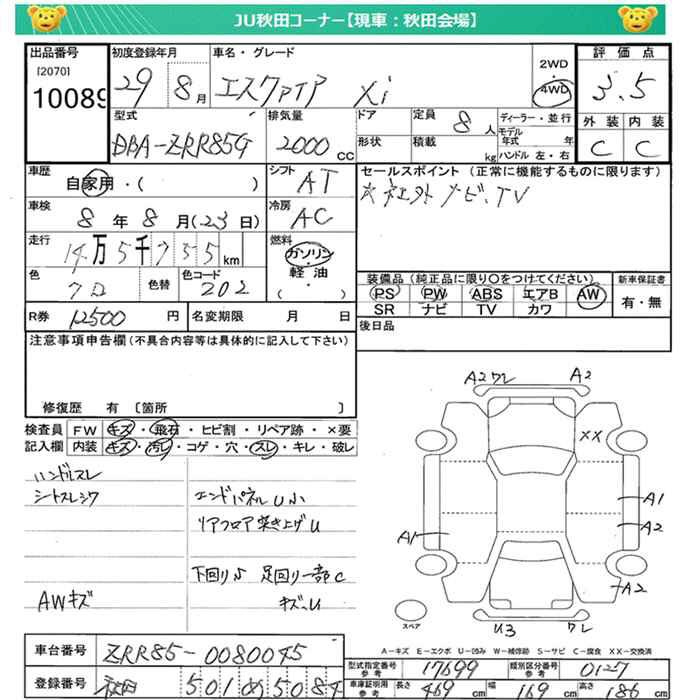 JU秋田コーナー【現車：秋田会場】
出品番号
[2070]
10089
初度登録年月
29 8月
車名・グレード
エスクァイア Xi
2WD
・
4WD
評価点
3.5
外装 内装
C C
型式
DBA-ZRR85G
排気量
2000 CC
ドア
形状
定員
8人
積載
kg
ディーラー・並行
モデル年式 年
ハンドル 左・右
車歴
自家用・( )
シフト
AT
車検
8年8月(23日)
冷房
AC
走行
14万5千755km
燃料
ガソリン
・
軽油
・
( )
色
クロ
色替
色コード
202
R券 12500円
名変期限 月 日
セールスポイント（正常に機能するものに限ります）
ナビ、TV
装備品（純正品に限り○をつけてください）
PS PW ABS エアB AW
SR ナビ TV カワ
新車保証書
有・無
後日品
注意事項申告欄（不具合内容等は具体的に記入して下さい）
修復歴 有 〔箇所 〕
検査員記入欄
FW キズ・飛石・ヒビ割・リペア跡・×要
内装 キズ・汚レ・コゲ・穴・スレ・キレ・破レ
ハンドルスレ
シートスレシワ
AWキズ
エンドパネルU小
リアフロア突き上げU
下回りS 足回り一部C
キズ、U
A2ワレ A2
XX
A1
A2
A1
A2
U3 ワレ
スペア
A－キズ E－エクボ U－凹み W－補修跡 S－サビ C－腐食 XX－交換済
車台番号 ZRR85-0080045
登録番号 秋田 501 め 5084
型式指定番号 参考 17699
類別区分番号 参考 0127
車庫証明用 参考 長さ 469cm 幅 169cm 高さ 186cm